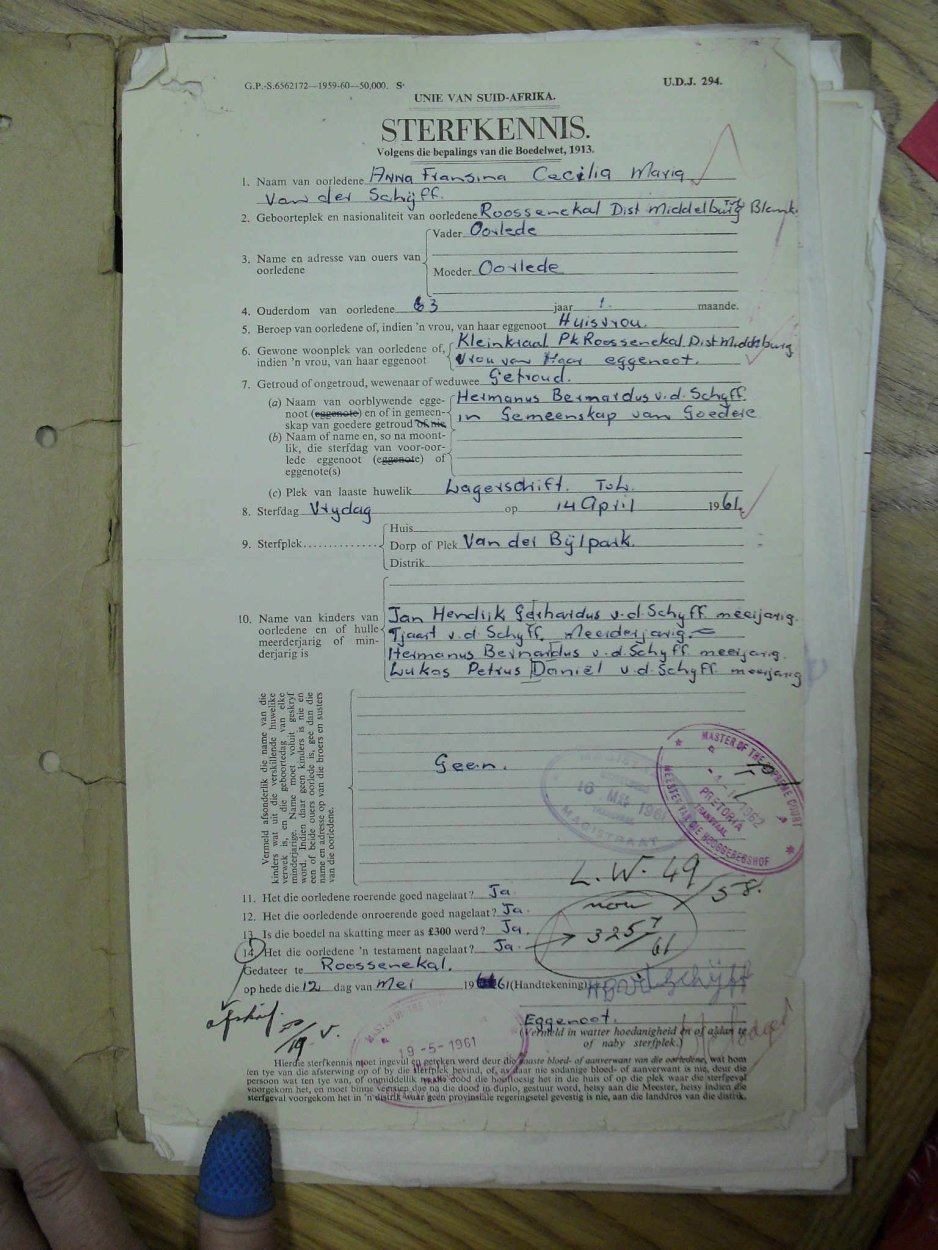 G.P.-S.6562172—1959-60—50,000. S·
U.D.J. 294.
UNIE VAN SUID-AFRIKA.
STERFKENNIS.
Volgens die bepalings van die Boedelwet, 1913.
1. Naam van oorledene Anna Fransina Cecilia Maria
Van der Schijff.
2. Geboorteplek en nasionaliteit van oorledene Roossenekal Dist Middelburg Blank.
3. Name en adresse van ouers van oorledene
Vader Oorlede
Moeder Oorlede
4. Ouderdom van oorledene 63 jaar 1. maande.
5. Beroep van oorledene of, indien 'n vrou, van haar eggenoot Huisvrou.
6. Gewone woonplek van oorledene of, indien 'n vrou, van haar eggenoot
Kleinkraal Pk Roossenekal Dist Middelburg
Vrou van Haar eggenoot.
7. Getroud of ongetroud, wewenaar of weduwee Getroud.
(a) Naam van oorblywende eggenoot (eggenote) en of in gemeenskap van goedere getroud of nie
Hermanus Bernardus v.d. Schyff
in Gemeenskap van Goedere
(b) Naam of name en, so na moontlik, die sterfdag van voor-oorlede eggenoot (eggenote) of eggenote(s)
(c) Plek van laaste huwelik Lagersdrift. Tvl.
8. Sterfdag Vrydag op 14 April 1961
9. Sterfplek
Huis
Dorp of Plek Van der Bijlpark.
Distrik
10. Name van kinders van oorledene en of hulle meerderjarig of minderjarig is
Jan Hendrik Gerhardus v.d Schyff meerjarig.
Tjaart v.d. Schyff. Meerderjarig.
Hermanus Bernardus v.d. Schyff meerjarig.
Lukas Petrus Daniël v.d. Schyff meerjarig
Vermeld afsonderlik die name van die
kinders wat uit die verskillende huwelike
verwek is, en die geboortedag van elke
minderjarige. Name moet voluit geskryf
word. Indien daar geen kinders is nie en
een of beide ouers oorlede is, gee dan die
name en adresse op van die broers en susters
van die oorledene.
Geen.
MAGISTRAAT
10 MEI 1961
MASTER OF THE SUPREME COURT
1962
PRETORIA
TRANSVAAL
MEESTER VAN DIE HOOGGEREGSHOF
L.W. 49
58.
11. Het die oorledene roerende goed nagelaat? Ja.
12. Het die oorledende onroerende goed nagelaat? Ja.
13. Is die boedel na skatting meer as £300 werd? Ja.
14. Het die oorledene 'n testament nagelaat? Ja.
now
3257/61
Gedateer te Roossenekal.
op hede die 12 dag van Mei 1961 (Handtekening)
Eggenoot.
(Vermeld in watter hoedanigheid en of aldan te of naby sterfplek.)
19-5-1961
Hierdie sterfkennis moet ingevul en geteken word deur die naaste bloed- of aanverwant van die oorledene, wat hom
ten tye van die afsterwing op of by die sterfplek bevind, of, as daar nie sodanige bloed- of aanverwant is nie, deur die
persoon wat ten tye van, of onmiddellik na die dood die hooftoesig het in die huis of op die plek waar die sterfgeval
voorgekom het, en moet binne veertien doe na die dood in duplo, gestuur word, hetsy aan die Meester, hetsy indien die
sterfgeval voorgekom het in 'n distrik waar geen provinsiale regeringsetel gevestig is nie, aan die landdros van die distrik.